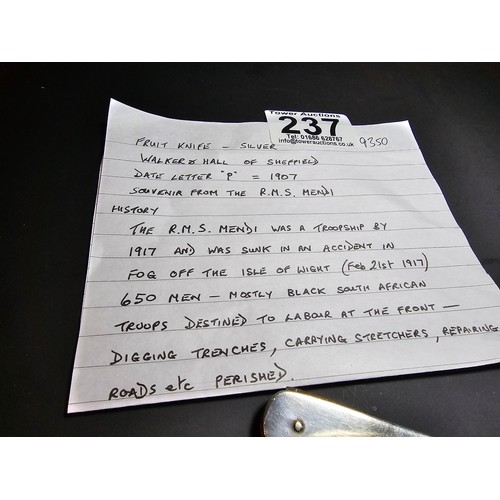 Tower Auctions
237
Tel: 01686 628767
info@towerauctions.co.uk
9350
FRUIT KNIFE - SILVER
WALKER & HALL OF SHEFFIELD
DATE LETTER "P" = 1907
SOUVENIR FROM THE R.M.S. MENDI
HISTORY
THE R.M.S. MENDI WAS A TROOPSHIP BY
1917 AND WAS SUNK IN AN ACCIDENT IN
FOG OFF THE ISLE OF WIGHT (Feb 21st 1917)
650 MEN - MOSTLY BLACK SOUTH AFRICAN
TROOPS DESTINED TO LABOUR AT THE FRONT -
DIGGING TRENCHES, CARRYING STRETCHERS, REPAIRING
ROADS etc PERISHED.